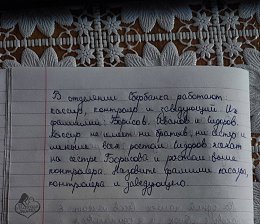 В отделении Сбербанка работают:
кассир, контролер и заведующий. Их
фамилии: Борисов, Иванов и Сидоров.
Кассир не имеет ни братьев, ни сестер и
меньше всех ростом. Сидоров женат
на сестре Борисова и ростом выше
контролера. Назовите фамилии кассира,
контролера и заведующего.